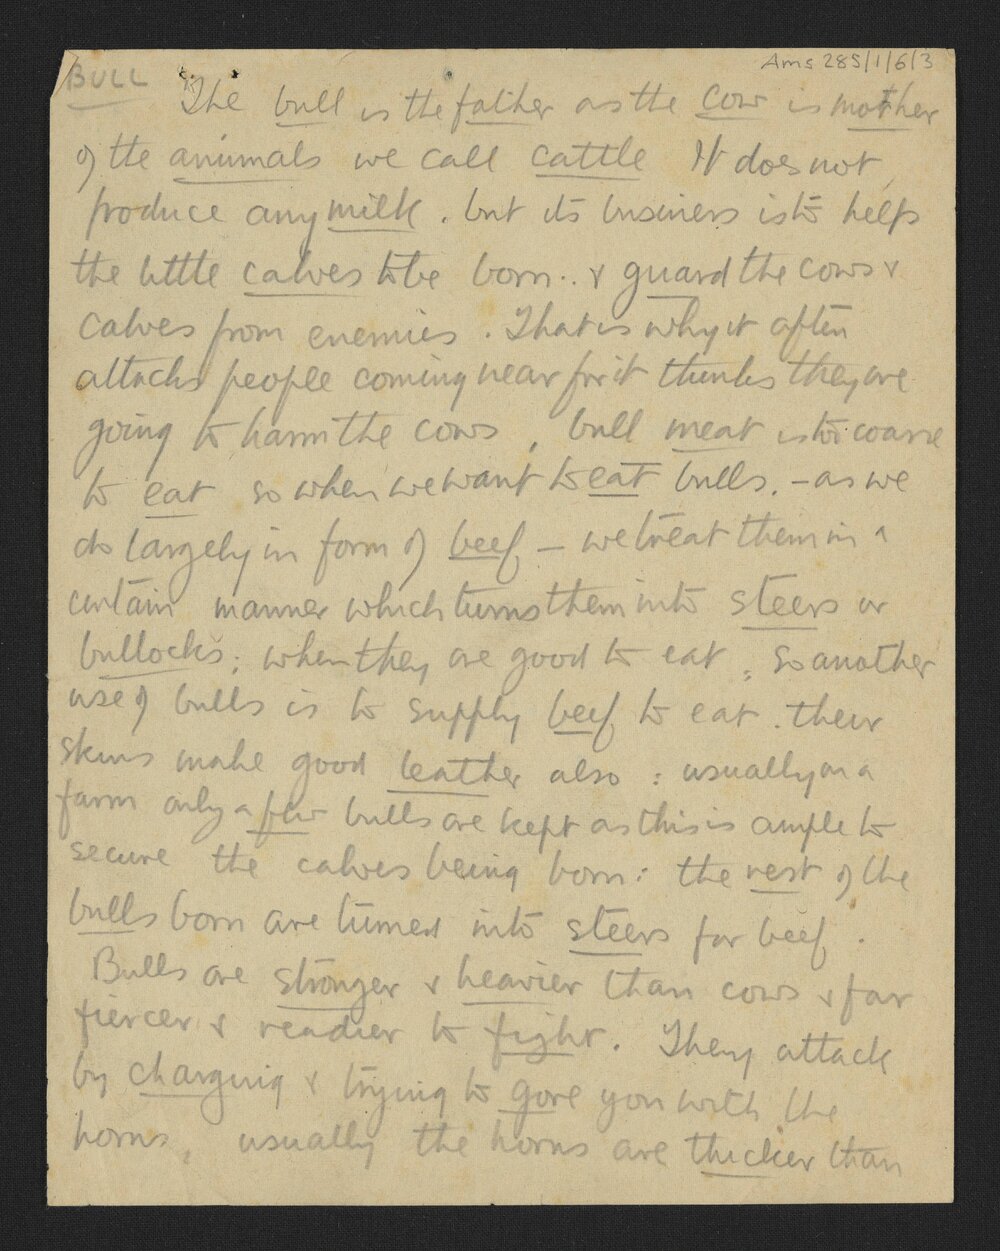 Ams 285/1/6/3
BULL
The bull is the father as the cow is mother
of the animals we call cattle It does not
produce any milk. but its business is to help
the little calves to be born. & guard the cows &
calves from enemies. That is why it often
attacks people coming near for it thinks they are
going to harm the cows, bull meat is too coarse
to eat so when we want to eat bulls. - as we
do largely in form of beef - we treat them in a
certain manner which turns them into steers or
bullocks; when they are good to eat, so another
use of bulls is to supply beef to eat. their
skins make good leather also: usually on a
farm only a few bulls are kept as this is ample to
secure the calves being born: the rest of the
bulls born are turned into steers for beef.
Bulls are stronger & heavier than cows & far
fiercer & readier to fight. They attack
by charging & trying to gore you with the
horns, usually the horns are thicker than